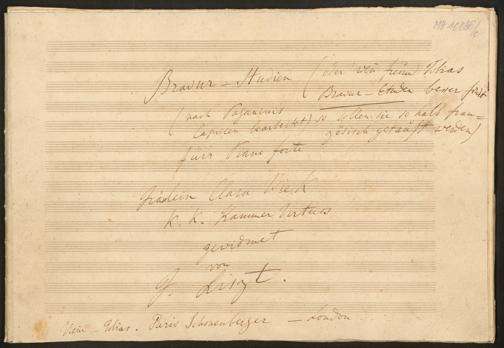 Bravur-Studien (oder wenn Tobias
Bravur-Etuden
(nach Paganinis
Capricen bearbeitet) so sollen sie so halb fran=
zösisch getauft werden)
fürs Piano forte
Fräulein Clara Wieck
K. K. Kammer Virtuos
gewidmet
von
F. Liszt.
Wien - Tobias. Paris Schonenberger - London